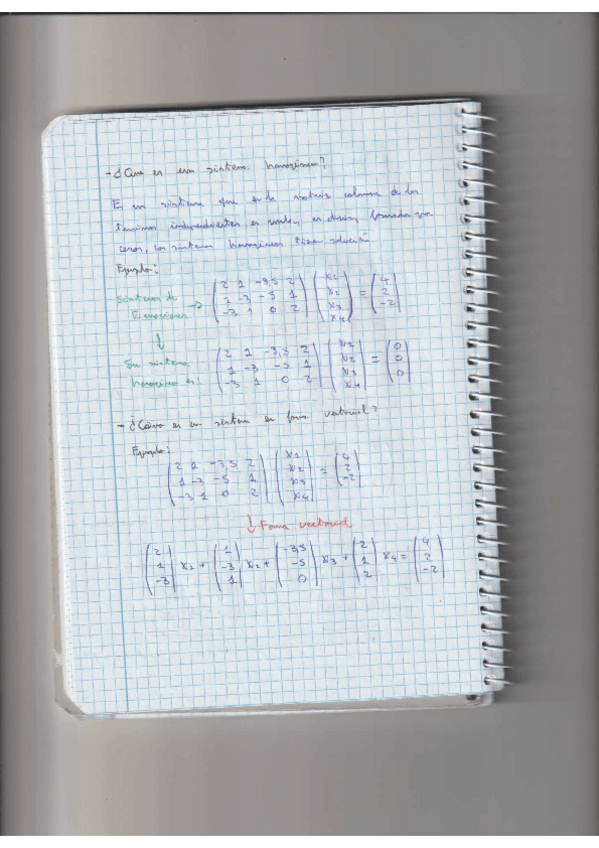 - ¿Que es un sistema homogéneo?
Es un sistema que es la matriz columna de los
terminos independientes, es nula, es decir, formada por
ceros, los sistemas homogéneos tiene solución
Ejemplo:
Sistema de Ecuaciones → (2 1 -3,5 2) (x₁) = (4)
(1 -3 -5 1) (x₂) (2)
(-3 1 0 2) (x₃) (-2)
(x₄)
↓
Su sistema homogéneo es: (2 1 -3,5 2) (x₁) = (0)
(1 -3 -5 1) (x₂) (0)
(-3 1 0 2) (x₃) (0)
(x₄)
- ¿Cómo es un sistema en forma vectorial?
Ejemplo:
(2 1 -3,5 2) (x₁) = (4)
(1 -3 -5 1) (x₂) (2)
(-3 1 0 2) (x₃) (-2)
(x₄)
↓ Forma vectorial
(2) x₁ + (1) x₂ + (-3,5) x₃ + (2) x₄ = (4)
(1) (-3) (-5) (1) (2)
(-3) (1) (0) (2) (-2)